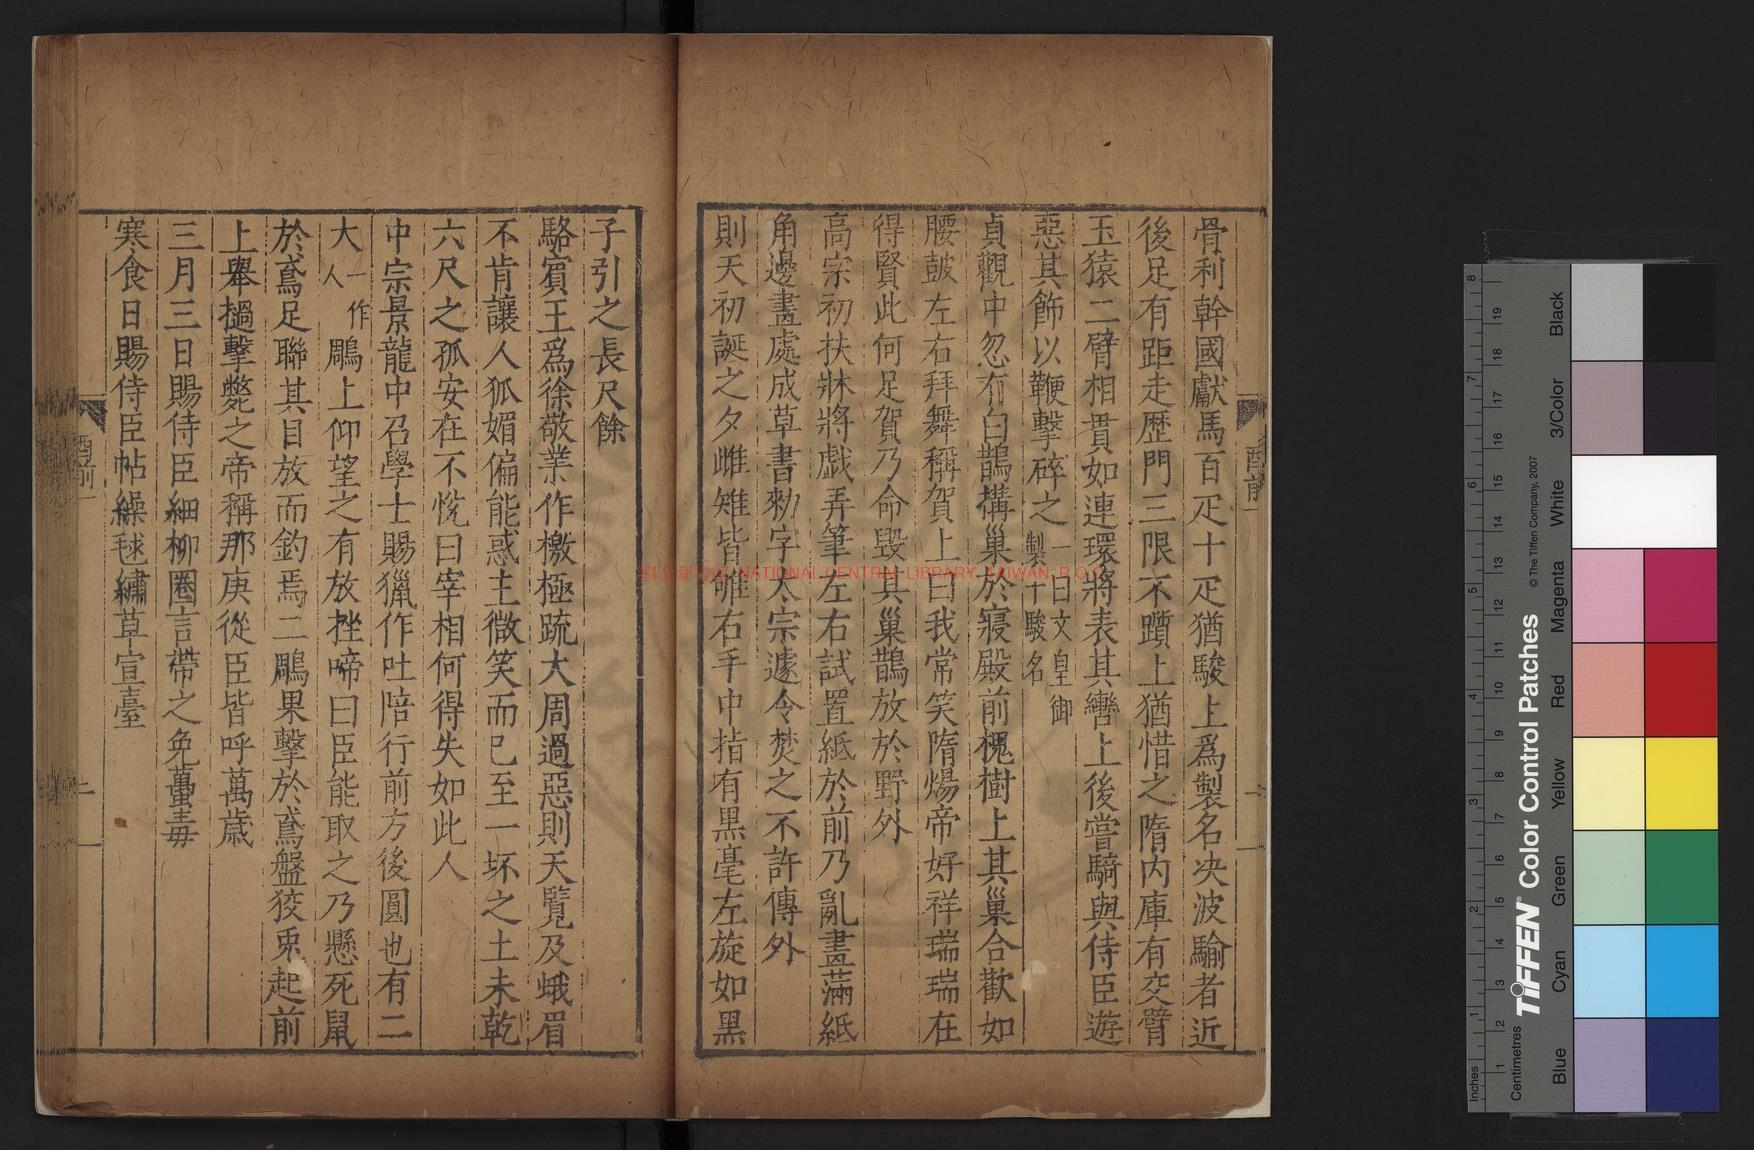 骨利幹國獻馬百疋十疋猶駿上爲製名决波騟者近
後足有距走歷門三限不躓上猶惜之隋内庫有交臂
玉猿二臂相貫如連環將表其轡上後嘗騎與侍臣遊
惡其飾以鞭擊碎之一曰文皇御製十駿名
貞觀中忽有白鵲構巢於寢殿前槐樹上其巢合歡如
腰皷左右拜舞稱賀上曰我常笑隋煬帝好祥瑞瑞在
得賢此何足賀乃命毀其巢鵲放於野外
高宗初扶牀將戯弄筆左右試置紙於前乃亂畫滿紙
角邊畫處成草書勑字太宗遽令焚之不許傳外
則天初誕之夕雌雉皆雊右手中指有黒毫左旋如黒
子引之長尺餘
駱賓王爲徐敬業作檄極疏大周過惡則天覽及蛾眉
不肯讓人狐媚偏能惑主微笑而已至一坏之土未乾
六尺之孤安在不悅曰宰相何得失如此人
中宗景龍中召學士賜獵作吐陪行前方後圓也有二
大一作人鵰上仰望之有放挫啼曰臣能取之乃懸死鼠
於鳶足聯其目放而釣焉二鵰果擊於鳶盤狡兎起前
上舉檛擊斃之帝稱那庚從臣皆呼萬歳
三月三日賜侍臣細柳圈言帶之免蠆毒
寒食日賜侍臣帖綵毬繡草宣臺
酉前
酉前
一
國家圖書館 NATIONAL CENTRAL LIBRARY, TAIWAN, R.O.C
TIFFEN® Color Control Patches
© The Tiffen Company, 2007
Inches
Centimetres
Blue
Cyan
Green
Yellow
Red
Magenta
White
3/Color
Black